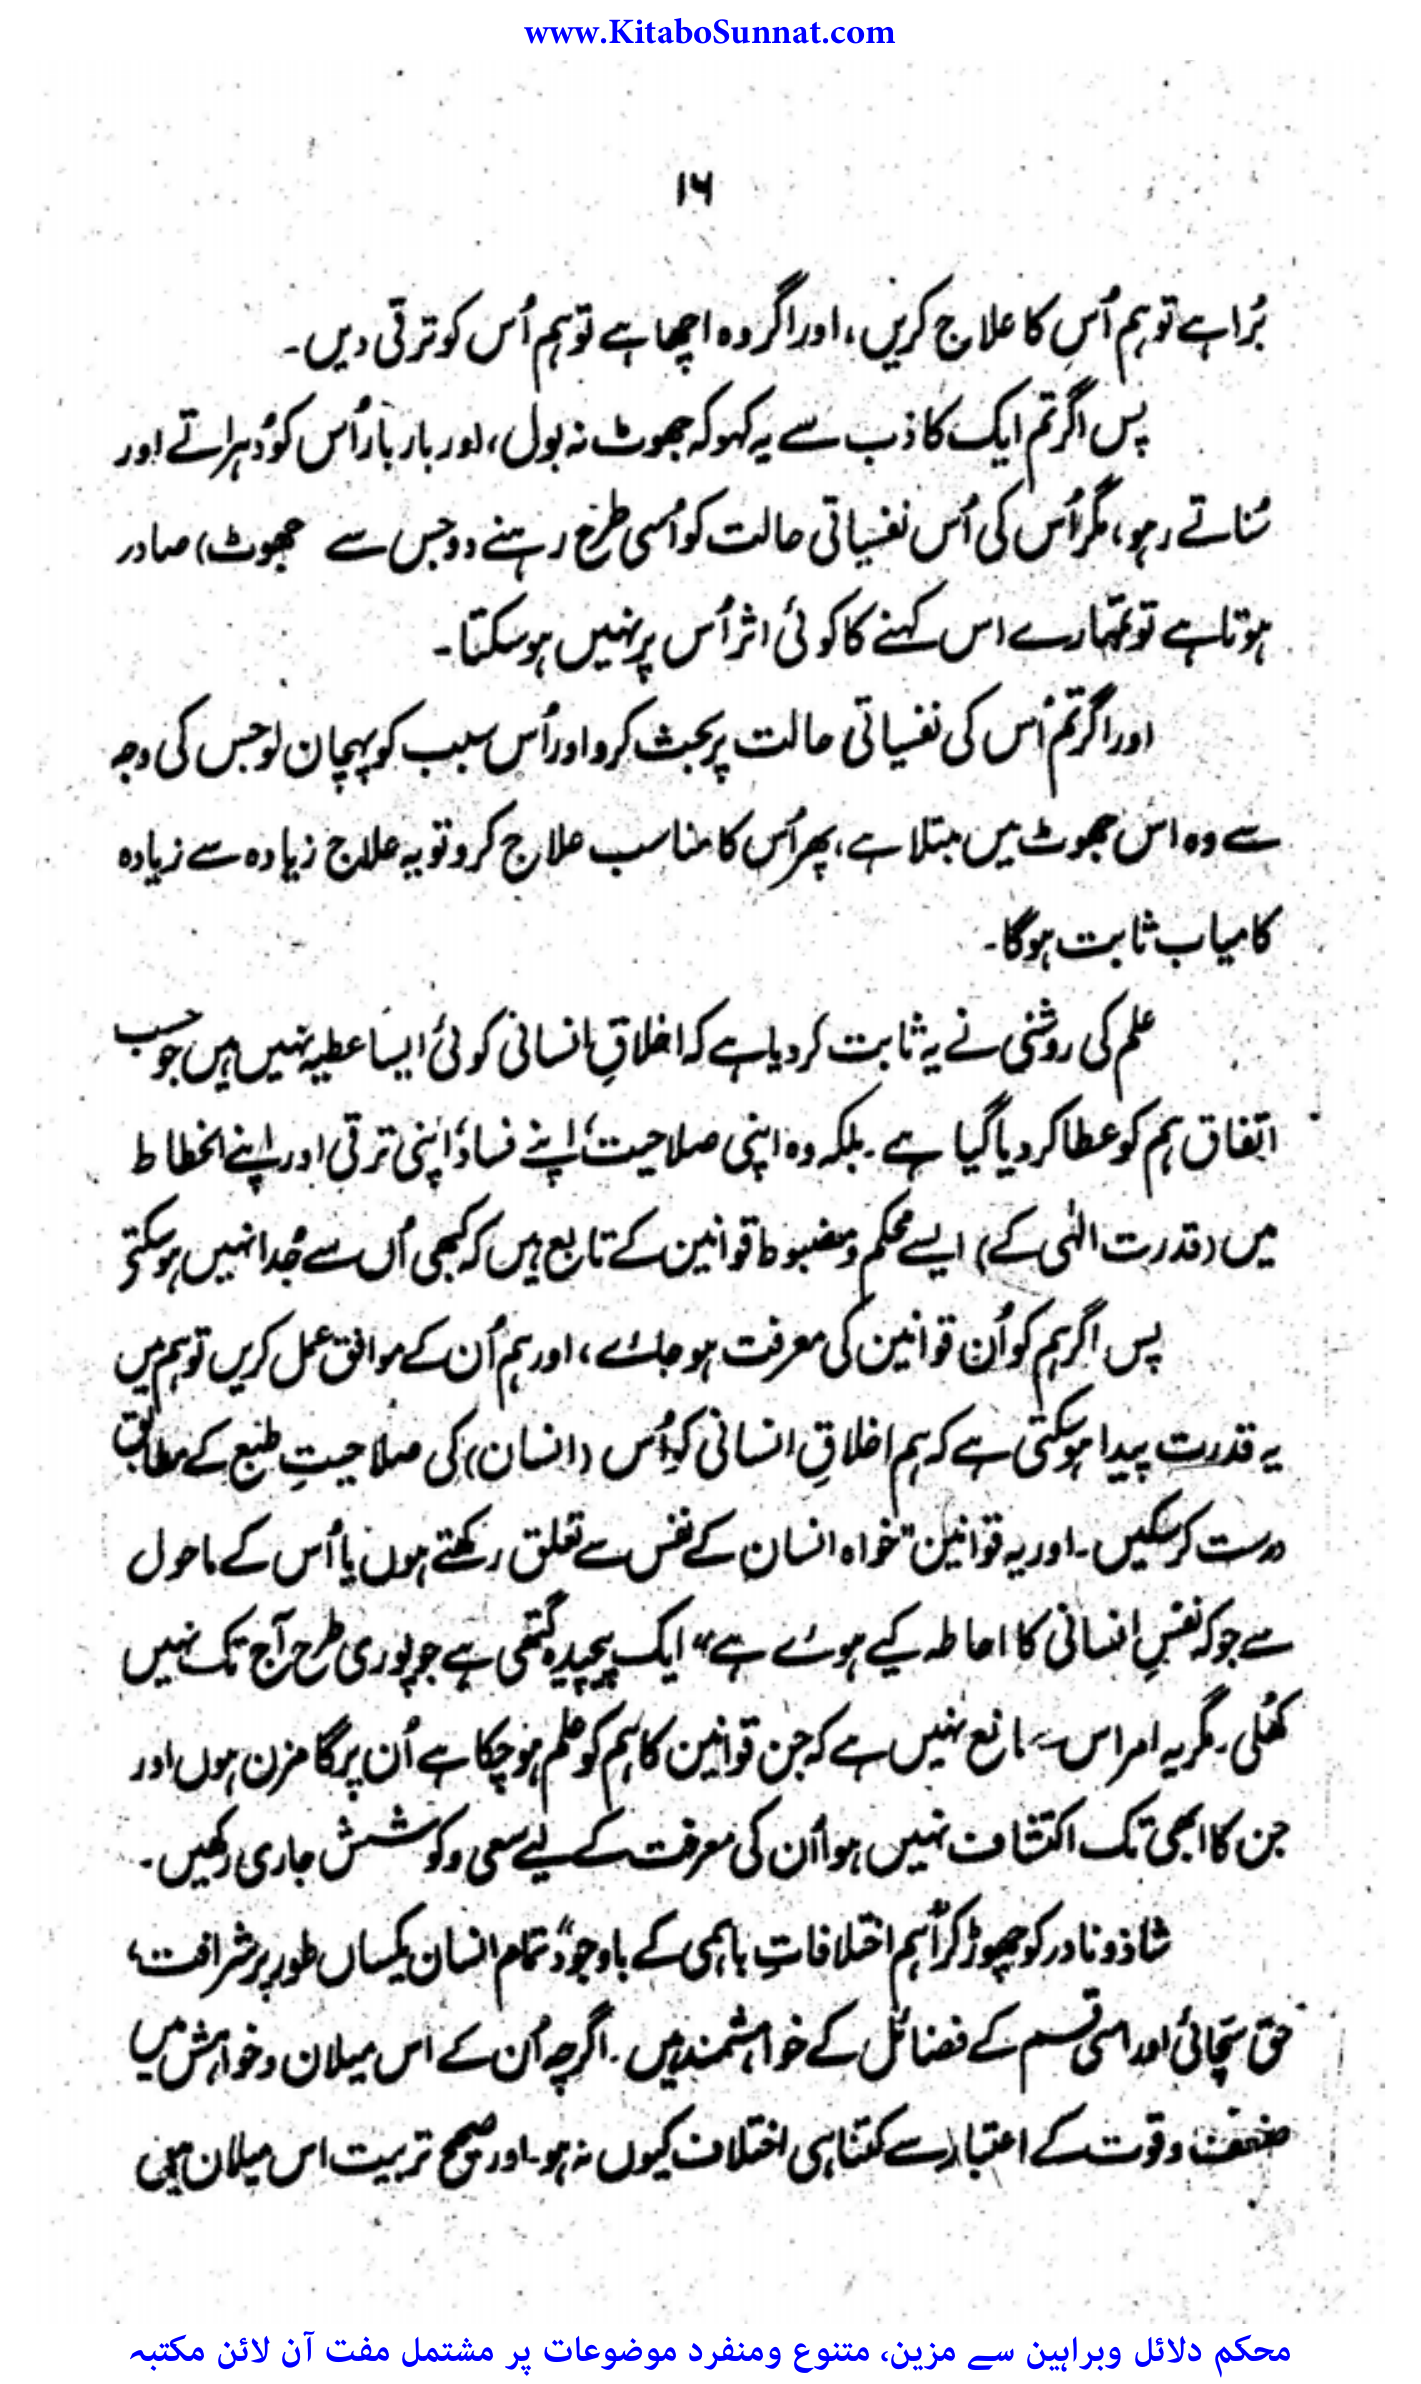 www.KitaboSunnat.com
۱۶
بُرا ہے تو ہم اُس کا علاج کریں، اور اگر وہ اچھا ہے تو ہم اُس کو ترقی دیں۔
پس اگر تم ایک کاذب سے یہ کہو کہ جھوٹ نہ بول، اور بار بار اُس کو دُہراتے اور
سُناتے رہو، مگر اُس کی اُس نفسیاتی حالت کو اُسی طرح رہنے دو جس سے جھوٹ) صادر
ہوتا ہے تو تمہارے اس کہنے کا کوئی اثر اُس پر نہیں ہو سکتا۔
اور اگر تم اُس کی نفسیاتی حالت پر بحث کرو اور اُس سبب کو پہچان لو جس کی وجہ
سے وہ اس جھوٹ میں مبتلا ہے، پھر اُس کا مناسب علاج کرو تو یہ علاج زیادہ سے زیادہ
کامیاب ثابت ہوگا۔
علم کی روشنی نے یہ ثابت کر دیا ہے کہ اخلاقِ انسانی کوئی ایسا عطیہ نہیں ہیں جو حسب
اتفاق ہم کو عطا کر دیا گیا ہے۔ بلکہ وہ اپنی صلاحیت، اپنے فساد، اپنی ترقی اور اپنے انحطاط
میں (قدرت الٰہی کے) ایسے محکم و مضبوط قوانین کے تابع ہیں کہ کبھی اُن سے جُدا نہیں ہو سکتے
پس اگر ہم کو اُن قوانین کی معرفت ہو جائے، اور ہم اُن کے موافق عمل کریں تو ہم میں
یہ قدرت پیدا ہو سکتی ہے کہ ہم اخلاقِ انسانی کو اُس (انسان) کی صلاحیتِ طبع کے مطابق
درست کر سکیں۔ اور یہ قوانین "خواہ انسان کے نفس سے تعلق رکھتے ہوں یا اُس کے ماحول
سے جو کہ نفسِ انسانی کا احاطہ کیے ہوئے ہے" ایک پیچیدہ گتھی ہے جو پوری طرح آج تک نہیں
کھُلی۔ مگر یہ امر اس سے مانع نہیں ہے کہ جن قوانین کا ہم کو علم ہو چکا ہے اُن پر گامزن ہوں اور
جن کا ابھی تک اکتشاف نہیں ہوا اُن کی معرفت کے لیے سعی و کوشش جاری رکھیں۔
شاذ و نادر کو چھوڑ کر "اہم اختلافاتِ باہمی کے باوجود" تمام انسان یکساں طور پر شرافت،
حق سچّائی اور اسی قسم کے فضائل کے خواہشمند ہیں۔ اگرچہ اُن کے اس میلان و خواہش میں
ضعف و قوت کے اعتبار سے کتنا ہی اختلاف کیوں نہ ہو۔ اور صحیح تربیت اس میلان
محکم دلائل وبراہین سے مزین، متنوع ومنفرد موضوعات پر مشتمل مفت آن لائن مکتبہ